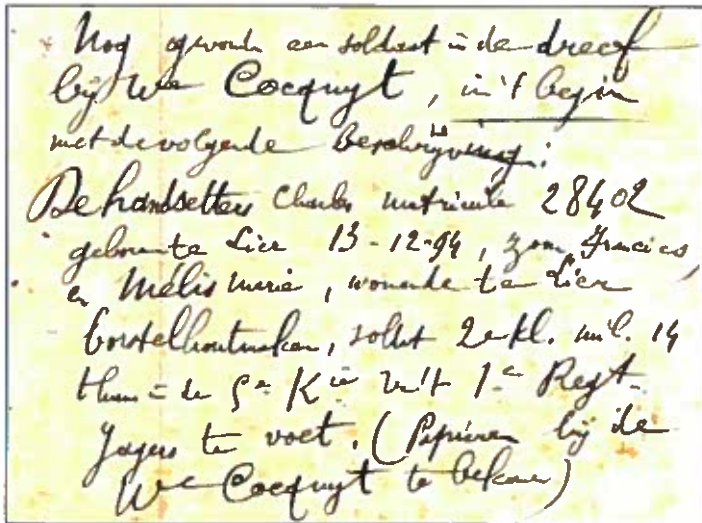 Nog gevonden een soldaat in de dreef
bij We Cocquyt, in 't begin
met de volgende Beschrijving:
Dehandsetters Charles matricule 28402
geboren te Lier 13-12-94, zoon Francies,
en Mélis Marie, wonende te Lier
borstelhoutmaker, soldt 2e kl. mil. 14
thans in de 5e Kie van't 1e Regt.
Jagers te voet. (Papieren bij de
We Cocquyt te bekomen)